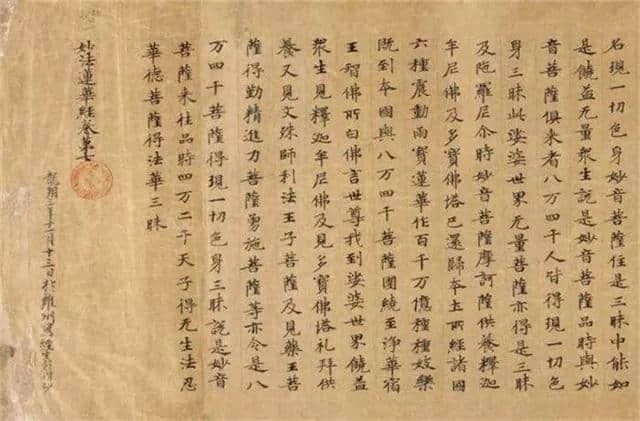 名現一切色身妙音菩薩住是三昧中能如
是饒益无量衆生說是妙音菩薩品時與妙
音菩薩俱来者八万四千人皆得現一切色
身三昧此娑婆世界无量菩薩亦得是三昧
及陁羅尼尒時妙音菩薩摩訶薩供養釋迦
牟尼佛及多寶佛塔已還歸本土所經諸國
六種震動雨寶蓮華作百千万億種種妓樂
既到本國與八万四千菩薩圍繞至淨華宿
王智佛所白佛言世尊我到娑婆世界饒益
衆生見釋迦牟尼佛及見多寶佛塔礼拜供
養又見文殊師利法王子菩薩及見藥王菩
薩得勤精進力菩薩勇施菩薩等亦令是八
万四千菩薩得現一切色身三昧說是妙音
菩薩来往品時四万二千天子得无生法忍
華德菩薩得法華三昧
妙法蓮華經卷第七
十三日於雍州寫經生